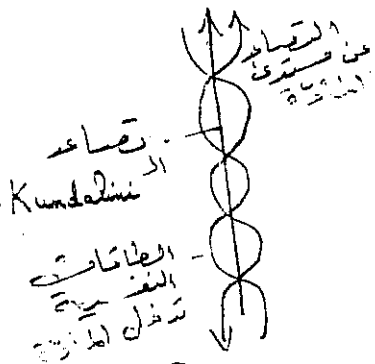 التصاعد
عن مستوى
تصاعد
الـ
Kundalini
الطاقات
النفسية
تدخل